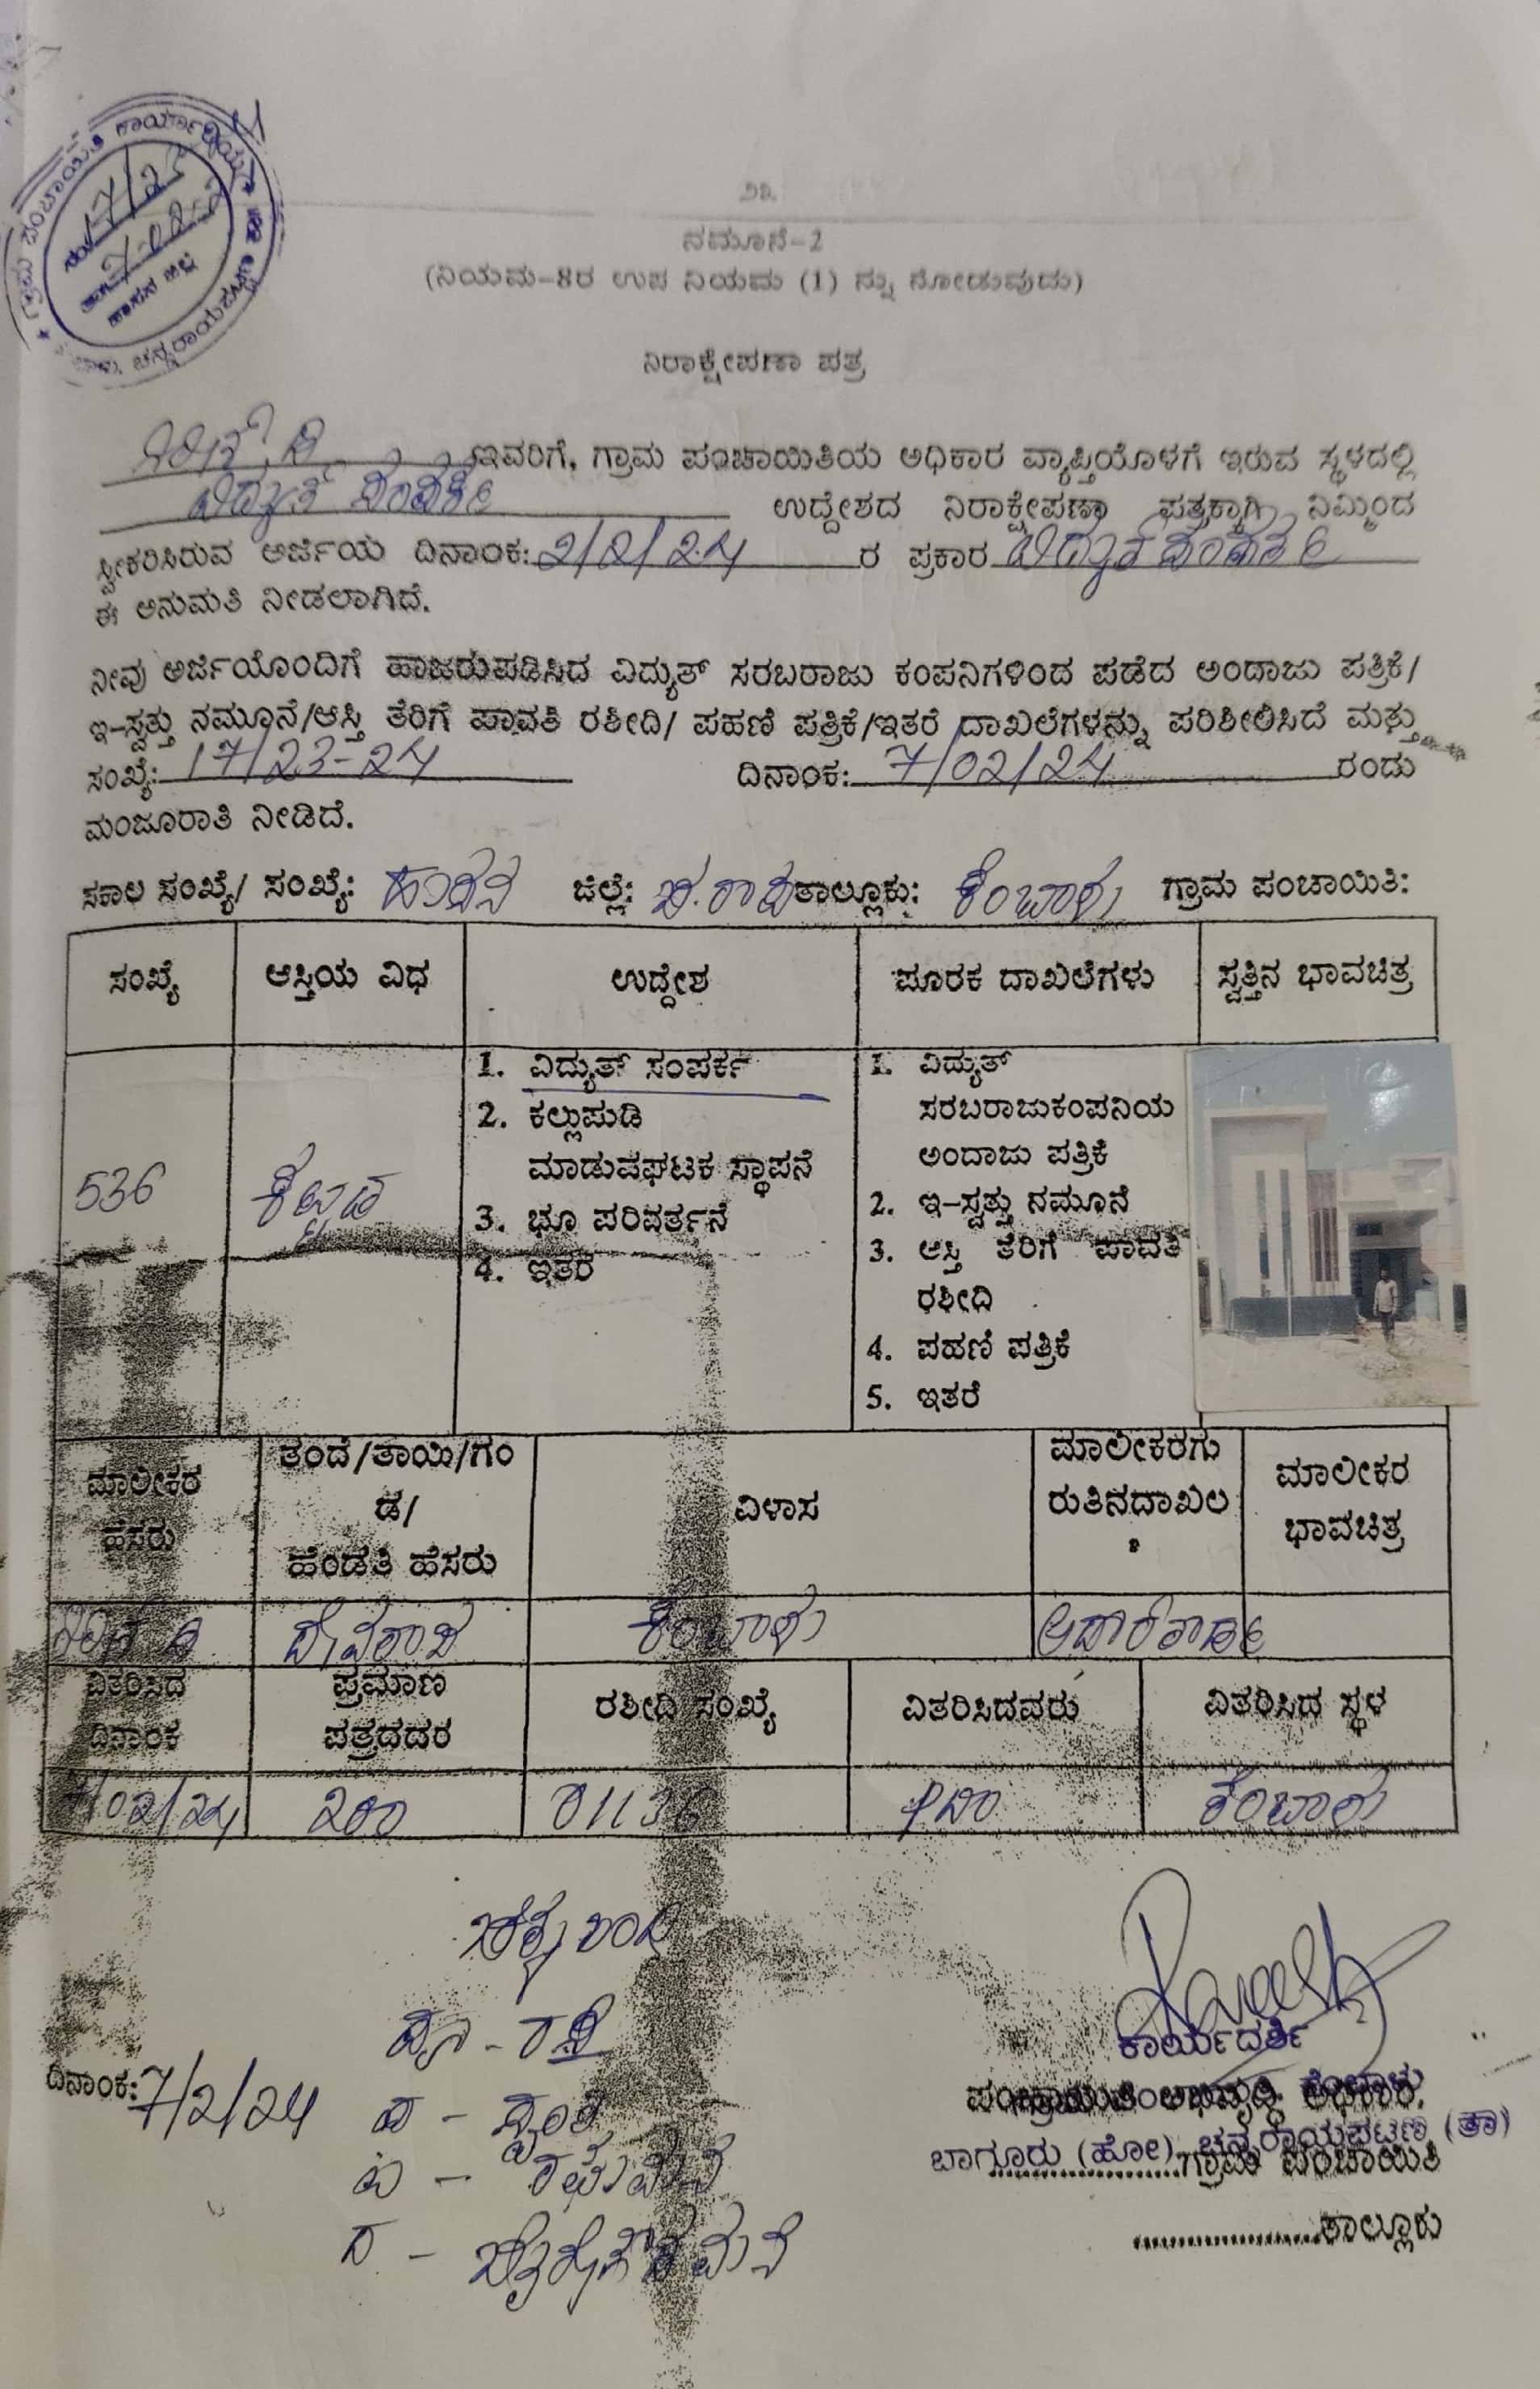 ಗ್ರಾಮ ಪಂಚಾಯಿತಿ ಕಾರ್ಯಾಲಯ
17/2
ಹಾಸನ ಜಿಲ್ಲೆ
೨೩
ನಮೂನೆ-2
(ನಿಯಮ-8ರ ಉಪ ನಿಯಮ (1) ನ್ನು ನೋಡುವುದು)
ನಿರಾಕ್ಷೇಪಣಾ ಪತ್ರ
ಇವರಿಗೆ, ಗ್ರಾಮ ಪಂಚಾಯಿತಿಯ ಅಧಿಕಾರ ವ್ಯಾಪ್ತಿಯೊಳಗೆ ಇರುವ ಸ್ಥಳದಲ್ಲಿ
ವಿದ್ಯುತ್ ಸಂಪರ್ಕ ಉದ್ದೇಶದ ನಿರಾಕ್ಷೇಪಣಾ ಪತ್ರಕ್ಕಾಗಿ ನಿಮ್ಮಿಂದ
ಸ್ವೀಕರಿಸಿರುವ ಅರ್ಜಿಯ ದಿನಾಂಕ: 2/2/24 ರ ಪ್ರಕಾರ ವಿದ್ಯುತ್ ಸಂಪರ್ಕ
ಈ ಅನುಮತಿ ನೀಡಲಾಗಿದೆ.
ನೀವು ಅರ್ಜಿಯೊಂದಿಗೆ ಹಾಜರುಪಡಿಸಿದ ವಿದ್ಯುತ್ ಸರಬರಾಜು ಕಂಪನಿಗಳಿಂದ ಪಡೆದ ಅಂದಾಜು ಪತ್ರಿಕೆ/
ಇ-ಸ್ವತ್ತು ನಮೂನೆ/ಆಸ್ತಿ ತೆರಿಗೆ ಪಾವತಿ ರಶೀದಿ/ ಪಹಣಿ ಪತ್ರಿಕೆ/ಇತರೆ ದಾಖಲೆಗಳನ್ನು ಪರಿಶೀಲಿಸಿದೆ ಮತ್ತು
ಸಂಖ್ಯೆ: 17/23-24 ದಿನಾಂಕ: 7/02/24 ರಂದು
ಮಂಜೂರಾತಿ ನೀಡಿದೆ.
ಸಕಾಲ ಸಂಖ್ಯೆ/ ಸಂಖ್ಯೆ: ಹಾಸನ ಜಿಲ್ಲೆ: ಚ.ರಾಪ ತಾಲ್ಲೂಕು: ಕೆಂಬಾಳು ಗ್ರಾಮ ಪಂಚಾಯಿತಿ:
ಸಂಖ್ಯೆ ಆಸ್ತಿಯ ವಿಧ ಉದ್ದೇಶ ಪೂರಕ ದಾಖಲೆಗಳು ಸ್ವತ್ತಿನ ಭಾವಚಿತ್ರ
536
1. ವಿದ್ಯುತ್ ಸಂಪರ್ಕ
2. ಕಲ್ಲುಪುಡಿ
ಮಾಡುವಘಟಕ ಸ್ಥಾಪನೆ
3. ಭೂ ಪರಿವರ್ತನೆ
4. ಇತರೆ
1. ವಿದ್ಯುತ್
ಸರಬರಾಜುಕಂಪನಿಯ
ಅಂದಾಜು ಪತ್ರಿಕೆ
2. ಇ-ಸ್ವತ್ತು ನಮೂನೆ
3. ಆಸ್ತಿ ತೆರಿಗೆ ಪಾವತಿ
ರಶೀದಿ
4. ಪಹಣಿ ಪತ್ರಿಕೆ
5. ಇತರೆ
ಮಾಲೀಕರ
ಹೆಸರು
ತಂದೆ/ತಾಯಿ/ಗಂ
ಡ/
ಹೆಂಡತಿ ಹೆಸರು
ವಿಳಾಸ
ಮಾಲೀಕರಗು
ರುತಿನದಾಖಲ
ೆ
ಮಾಲೀಕರ
ಭಾವಚಿತ್ರ
ದೇವರಾಜ ಕೆಂಬಾಳು ಆಧಾರ್ ಕಾರ್ಡ್
ವಿತರಿಸಿದ
ದಿನಾಂಕ
ಪ್ರಮಾಣ
ಪತ್ರದದರ
ರಶೀದಿ ಸಂಖ್ಯೆ
ವಿತರಿಸಿದವರು
ವಿತರಿಸಿದ ಸ್ಥಳ
7/02/24 200 01136 ಕೆಂಬಾಳು
ಚಕ್ಕುಬಂದಿ
ಕಾರ್ಯದರ್ಶಿ
ದಿನಾಂಕ: 7/2/24
ಪಂಚಾಯಿತಿ ಅಭಿವೃದ್ಧಿ ಅಧಿಕಾರಿ.
ಬಾಗೂರು (ಹೋ) ಚನ್ನರಾಯಪಟ್ಟಣ (ತಾ)
ಗ್ರಾಮ ಪಂಚಾಯಿತಿ
ತಾಲ್ಲೂಕು